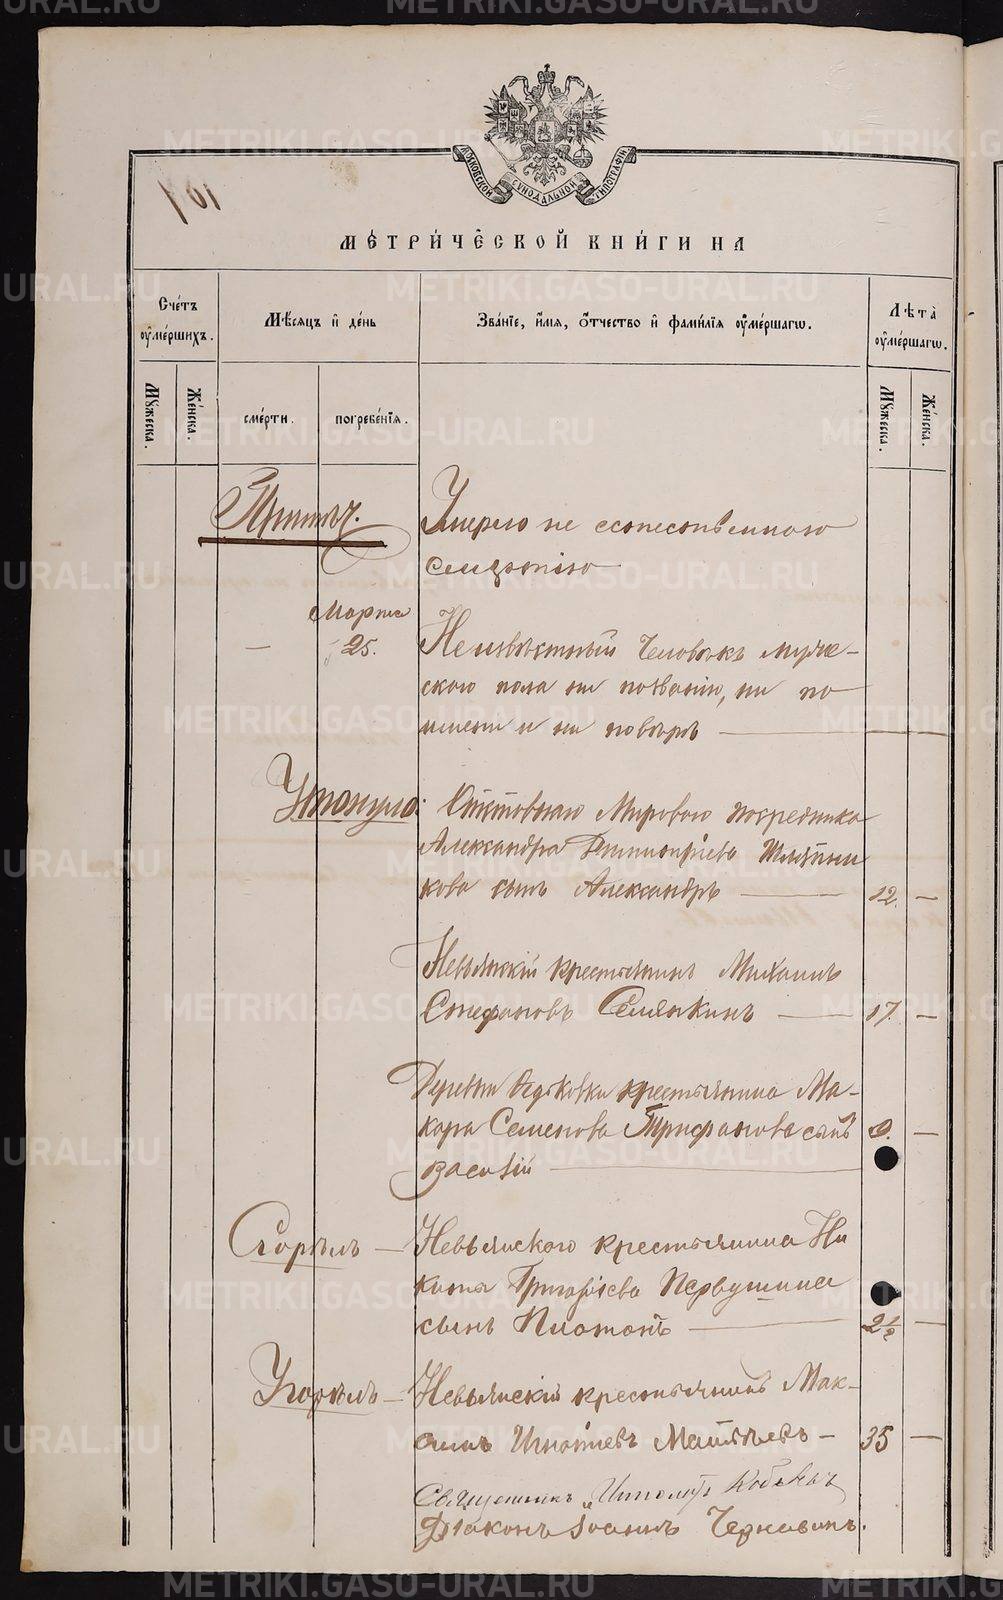 METRIKI.GASO-URAL.RU
МОСКОВСКОЙ СѴНОДАЛЬНОЙ ТИПОГРАФІИ
МЕТРИЧЕСКОЙ КНИГИ НА
Счетъ оумершихъ.
Мѣсяцъ и день
Званіе, имя, отчество и фамилія оумершагѡ.
Лѣта оумершагѡ.
Мꙋжеска.
Женска.
смерти.
погребенія.
Мꙋжеска.
Женска.
Примѣч.
Умерло не естественною
смертію
Марта
25.
Неизвѣстный человѣкъ муже-
скаго пола ни по званію, ни по
имени и ни по вѣрѣ
Утонуло:
Мироваго посредника
Александра Димитріева
кова сынъ Александръ 12.
Невьянскій крестьянинъ Михаилъ
Стефановъ Семянкинъ 17.
Деревни Ѳедьковки крестьянина Ма-
кара Семенова Трифанова сынъ 9.
Василій
Сгорѣлъ Невьянскаго крестьянина Ни
киты Григоріева Первушина
сынъ Платонъ 2½
Угорѣлъ Невьянскій крестьянинъ Мак-
симъ Игнатіевъ Матвѣевъ 35
Священникъ
Діаконъ Іоаннъ Чернавинъ.